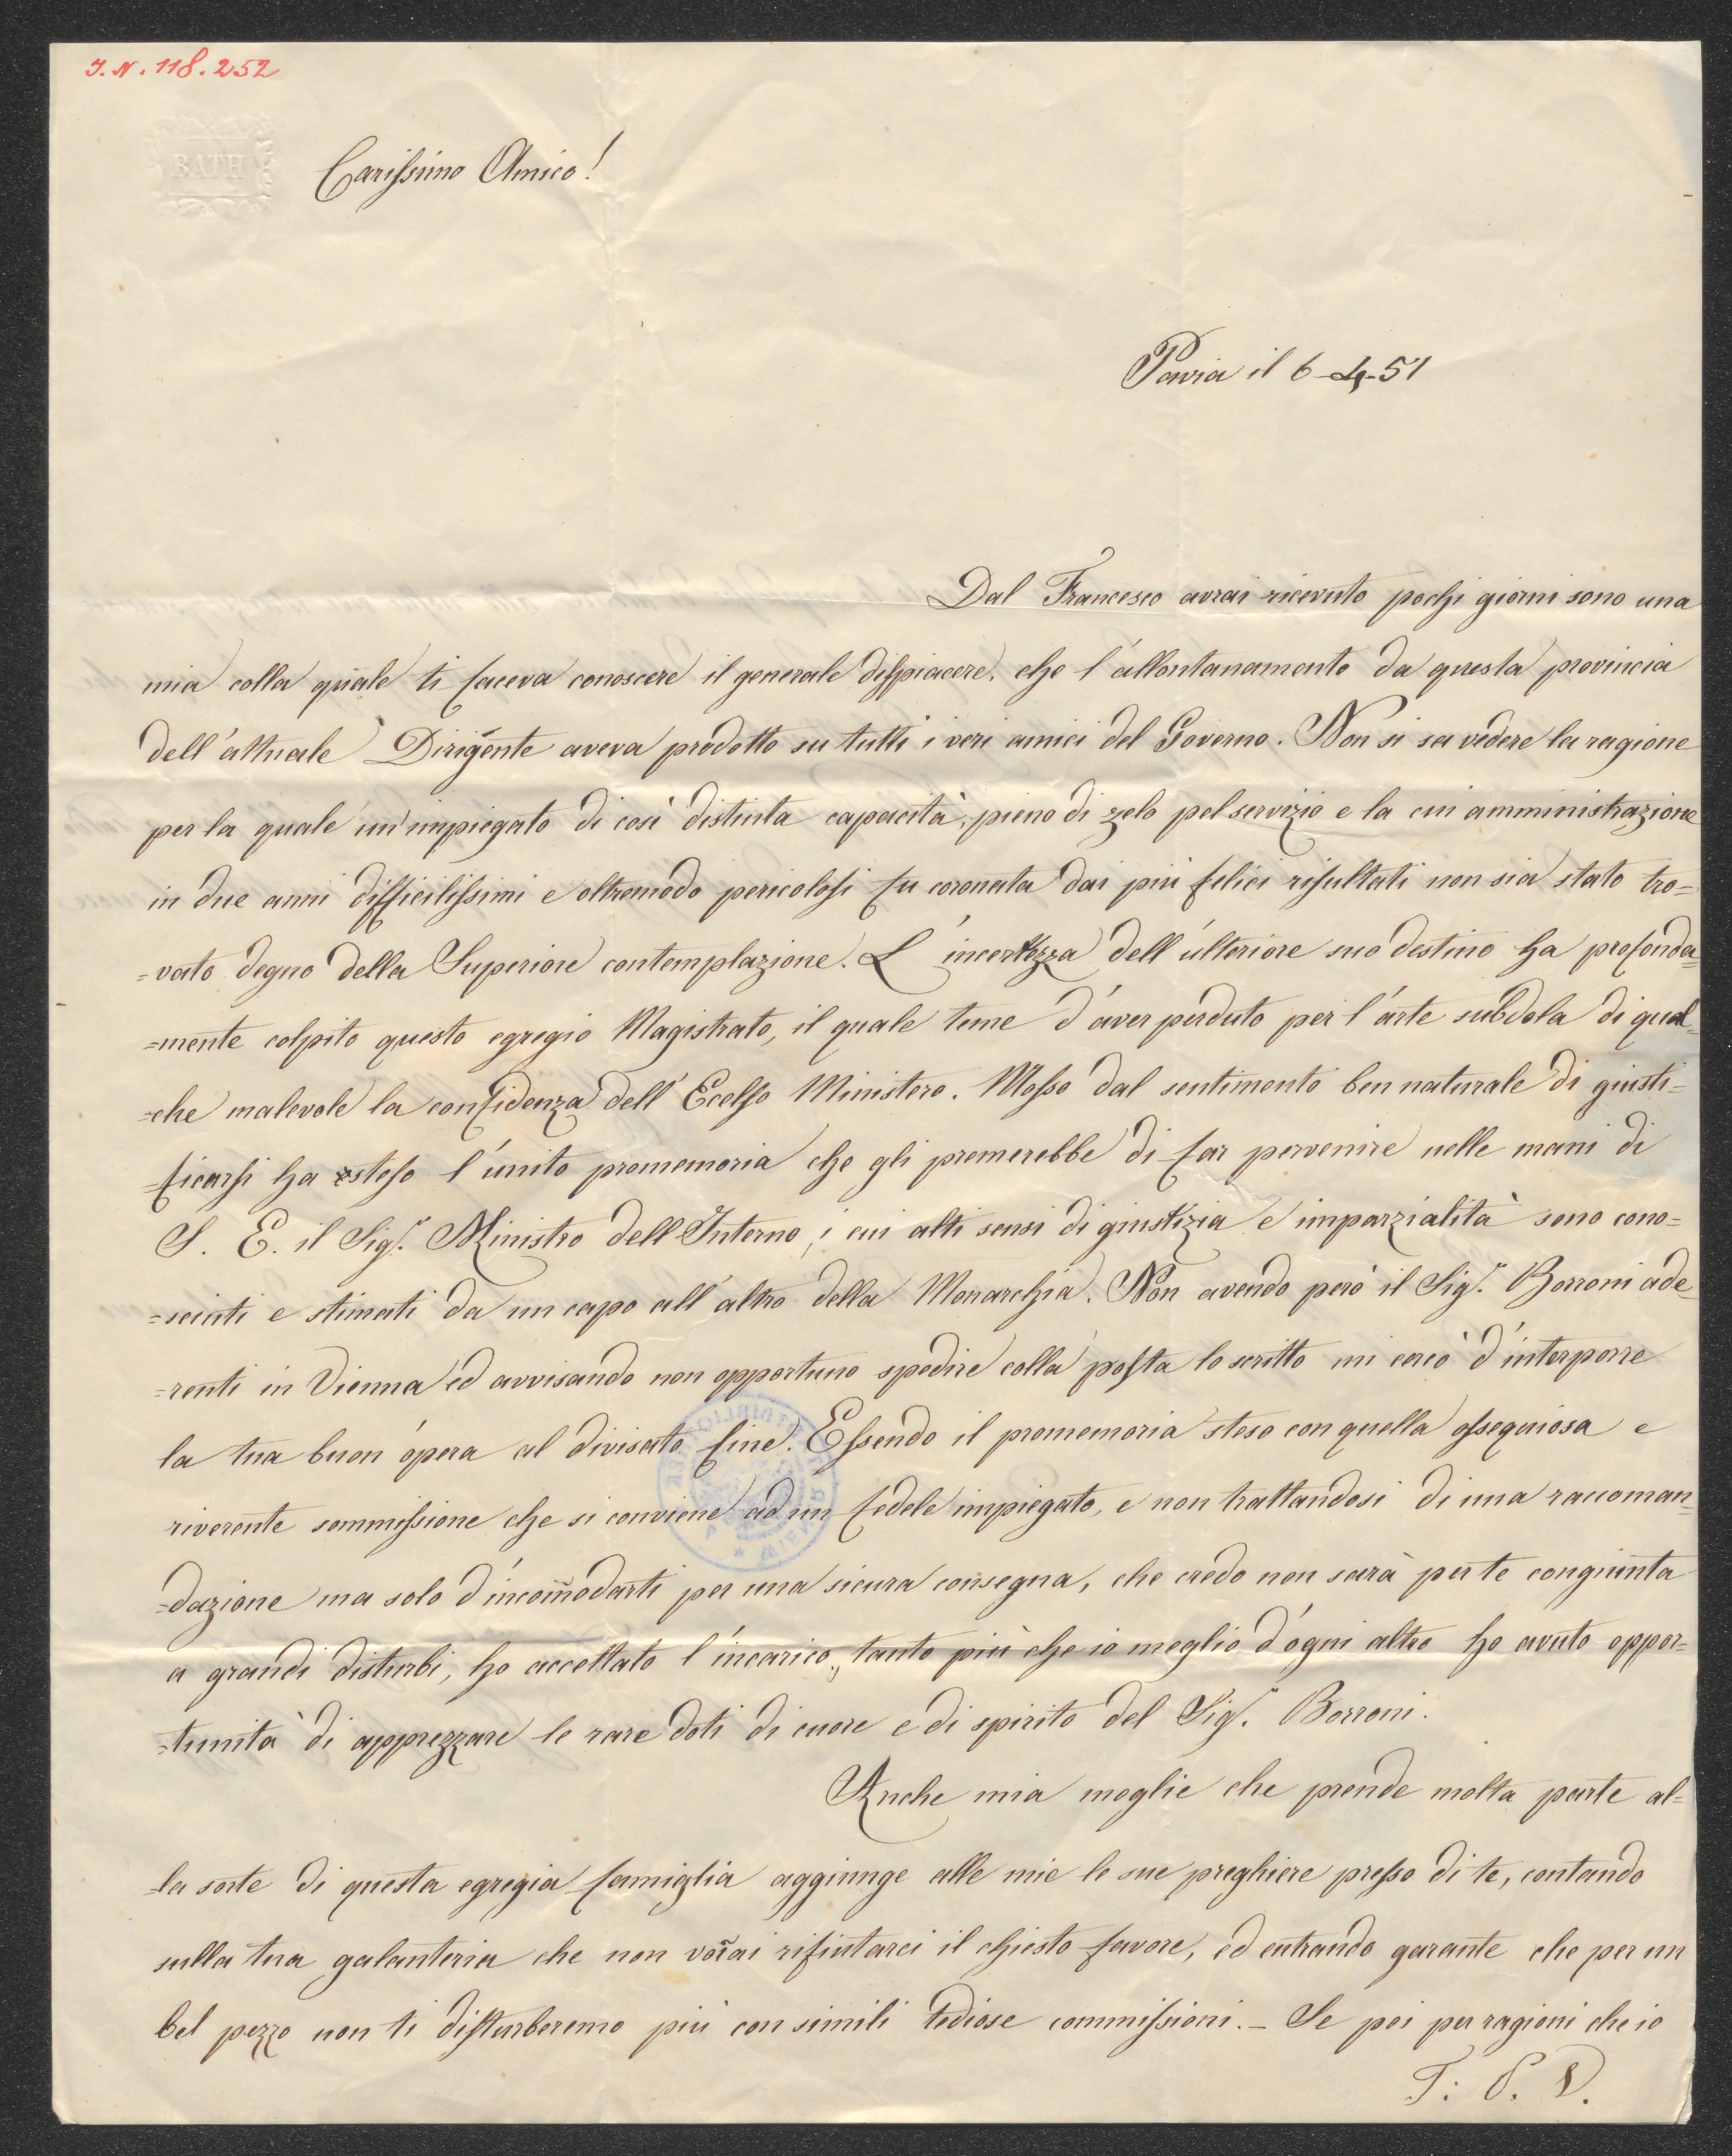 J. N. 118.252
BATH
Carissimo Amico!
Pavia il 6-4-51
Dal Francesco avrai ricevuto pochi giorni sono una
mia colla quale ti faceva conoscere il generale dispiacere, che l'allontanamento da questa provincia
dell'attuale Dirigente aveva prodotto su tutti i veri amici del Governo. Non si sa vedere la ragione
per la quale un'impiegato di così distinta capacità, pieno di zelo pel servizio e la cui amministrazione
in due anni difficilissimi e oltremodo pericolosi fu coronata dai più felici risultati non sia stato tro=
=vato degno della Superiore contemplazione. L'incertezza dell'ulteriore suo destino ha profonda=
=mente colpito questo egregio Magistrato, il quale teme d'aver perduto per l'arte subdola di qual=
=che malevole la confidenza dell'Ecelso Ministero. Mosso dal sentimento ben naturale di giusti=
=ficarsi ha esteso l'unito promemoria che gli premerebbe di far pervenire nelle mani di
S. E. il Sigr. Ministro dell'Interno, i cui alti sensi di giustizia e imparzialità sono cono=
=sciuti e stimati da un capo all'altro della Monarchia. Non avendo però il Sigr. Borroni ade=
=renti in Vienna ed avvisando non opportuno spedire colla posta lo scritto mi cercò d'interporre
la tua buon'opera al divisato fine. Essendo il promemoria steso con quella ossequiosa e
riverente sommissione che si conviene ad un fedele impiegato, e non trattandosi di una raccoman=
=dazione ma solo d'incom̄odarti per una sicura consegna, che credo non sarà per te congiunta
a grandi disturbi, ho accettato l'incarico, tanto più che io meglio d'ogni altro ho avuto oppor=
=tunità di apprezzare le rare doti di cuore e di spirito del Sigr. Borroni.
Anche mia moglie che prende molta parte al=
=la sorte di questa egregia famiglia aggiunge alle mie le sue preghiere presso di te, contando
sulla tua galanteria che non vor̄ai rifiutarci il chiesto favore, ed entrando garante che per un
bel pezzo non ti disturberemo più con simili tediose commissioni. - Se poi per ragioni che io